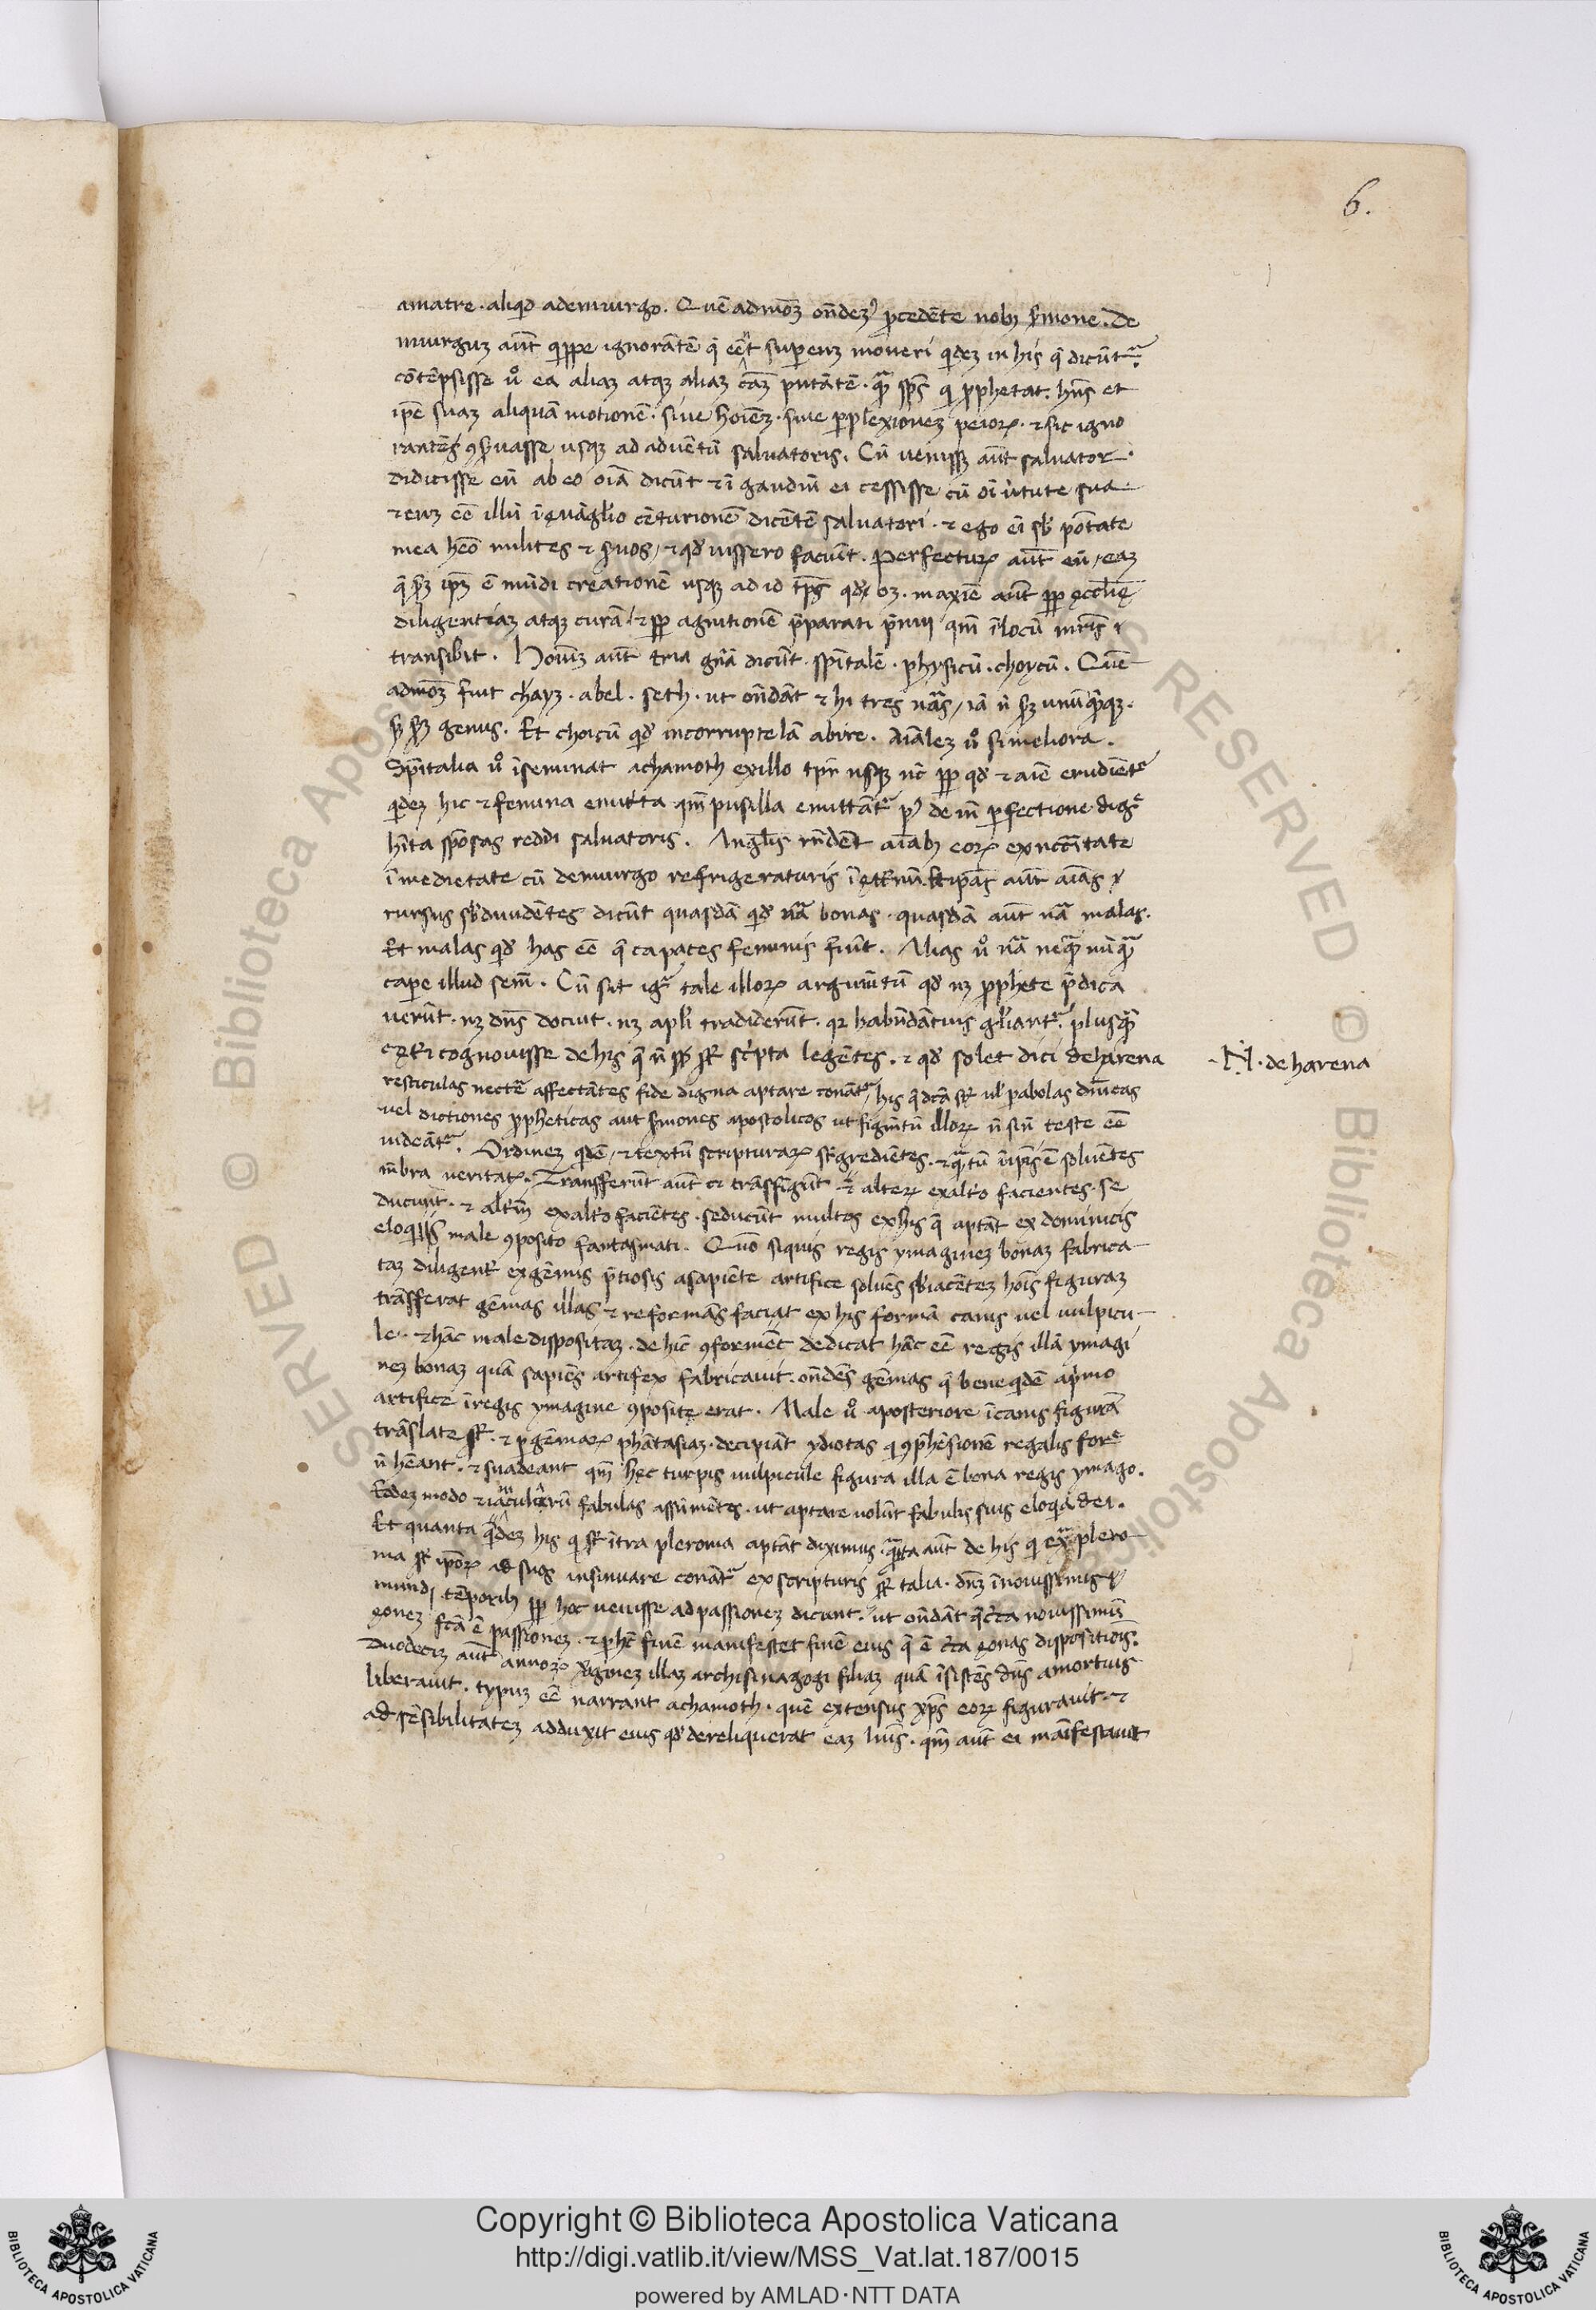 6.
amatre. aliqd ademiurgo. Quē admoꝝ on̄dem⁹ p̄cedēte nobꝫ ẜmone. de
miurguꝫ aūt quippe ignorātē q̄ eēt super eum moueri quidez in his q̄ dicūtᷓ.
cōtēpsisse u̇o ea aliaꝫ atqꝫ aliaꝫ cāꝫ putātē. q̄ sp̄s qi ꝓphetat. hn̄s et
ip̄e suaꝫ aliquā motionē. siue hoīeꝫ. siue perplexionez peioꝝ. ⁊ sic igno
rantēs ꝯẜuasse usqꝫ ad aduētū saluatoris. Cū uenissꝫ aūt saluator.
didicisse eū ab eo oīa dicūt ⁊ ī gaudiū ei cessisse cū oī u̇tute sua
⁊ euꝫ eē illū ī euāglio cēturionē dicētē saluatori. ⁊ ego eī sb̄ pōtate
mea heō milites ⁊ ẜuos, ⁊ qd̄ iussero faciūt. Perfectuꝝ aūt eū, eaꝫ
q̄ ẜꝫ ip̄ꝫ ē mūdi creationē usqꝫ ad id tp̄s qd̄ oꝫ. maxīe aūt ꝓp̄ ęccl̄ię
diligentiaꝫ atqꝫ curā, ⁊ ꝓp̄ agnitionē p̄parati p̄mii qm̄ ī locū mr̄is
transibit. Hoīuꝫ aūt tria gn̄a dicūt. sp̄italē. physicū. choycū. Quē
admoꝝ fuit chayꝫ. abel. seth. ut on̄dāt ⁊ hi tres nās, iā n̄ ẜꝫ unūqꝫqꝫ.
ẜ ẜꝫ genus. Et choicū qd̄ in corruptelā abire. aīaleꝫ u̇o si meliora.
Sp̄italia u̇o īseminat achamoth ex illo tp̄r usqꝫ nc̄ ꝓp̄ qd̄ ⁊ aīe erudiēt᷑
qdeꝫ hic ⁊ semina emitta qm̄ pusilla emittāt᷑ p⁹ de īn perfectione dig᷑
hīta spōsas reddi saluatoris. Angl̄is rn̄dēt aīabꝫ eoꝝ ex nccītate
ī medietate cū demiurgo refrigeraturis ī ęt̄rnū. Et ip̄as aūt aīas
rursus sb̄diuidētes dicūt quasdā qd̄ nā bonas. quasdā aūt nā malas.
Et malas qd̄ has eē q̄ capaces seminis fiūt. Alias u̇o nā neq̄ nūq̄
capere illud sem̄. Cū sit ig᷑ tale illoꝝ argum̄tū qd̄ nꝫ ꝓphete p̄dica
uerūt. nꝫ dn̄s dociut. nꝫ apl̄i tradiderūt. qꝫ habūdātius gl̄iant᷑. plusq̄
cęt̄i cognouisse de his q̄ n̄ sp̄ st̄ sc̄pta legētes. ⁊ qd̄ solet dici de harena
resticulas nectē affectātes fide digna aptare conāt᷑, his q̄ dc̄a st̄ ul̄ pabolas dn̄icas
uel dictiones ꝓpheticas aut ẜmones apostolicos ut figm̄tū illoꝝ n̄ sin̄ teste eē
uideāt᷑. Ordineꝫ qdē, ⁊ textū scripturaꝝ st̄gredientes. ⁊ q̄tū ī ip̄is ē soluētes
m̄bra ueritat. Transferūt aūt ⁊ trāsfigūt ⁊ alteꝝ ex alt̄o facientes. se
ducūnt. ⁊ alt̄m ex alt̄o faciētes. seducūt multos ex his q̄ aptāt ex dominicis
eloquiis male ꝯposito fantasmati. Quō siquis regis ymagineꝫ bonaꝫ fabrica
taꝫ diligent̄ ex gēmis p̄tiosis a sapiēte artifice soluēs sb̄iacēteꝫ hoīs figuraꝫ
trāsferat gēmas illas ⁊ reformās faciat ex his formā canis uel uulpicu
le. ⁊ hāc male dispositaꝫ. dehīc ꝯformēt dedicat hāc eē regis illā ymagi
neꝫ bonaꝫ quā sapiēs artifex fabricauit. on̄dēs gēmas q̄ bene qdē ap̄mo
artifice ī regis ymagine ꝯposite erat. Male u̇o a posteriore ī canis figurā
trāslate st̄. ⁊ p̄ gēmaꝝ phātasiaꝫ. decipiāt ydiotas qi ꝯp̄hēsionē regalis for᷑e
n̄ hēant. ⁊ suadeant qm̄ hec turpis uulpicule figura illa ē bona regis ymago.
Eodeꝫ modo ⁊ anicularū fabulas assūmētes. ut aptare uolūt fabulis suis eloq̄a dei.
Et quanta q̄deꝫ his qi st̄ ītra pleroma aptāt diximus. q̄nta aūt de his qi ext᷑ plero
ma st̄ ipōꝝ ad suos insinuare conāt᷑ ex scripturis st̄ talia. dn̄ꝫ ī nouissimis
mundi tēporibꝫ ꝓp̄ hoc uenisse ad passioneꝫ dicunt. ut on̄dāt q̄ circa nouissimū
ęoneꝫ fc̄ā ē passioneꝫ. ⁊ p̄ hc̄ finē manifestet finē eius q̄ ē cc̄a ęonas dispositiōis.
Duodeciꝫ aūt annoꝝ ùgineꝫ illaꝫ archisinagogi filiaꝫ quā īsistēs dn̄s a mortuis
liberauit. typuꝫ eē narrant achamoth. quē extensus xp̄s eoꝝ figurauit. ⁊
ad sēsibilitateꝫ adduxit eius qd̄ dereliquerat eaꝫ luīs. qm̄ aūt ei manifestauit
.N. de harena
Copyright © Biblioteca Apostolica Vaticana
http://digi.vatlib.it/view/MSS_Vat.lat.187/0015
powered by AMLAD·NTT DATA
BIBLIOTECA APOSTOLICA VATICANA
BIBLIOTECA APOSTOLICA VATICANA